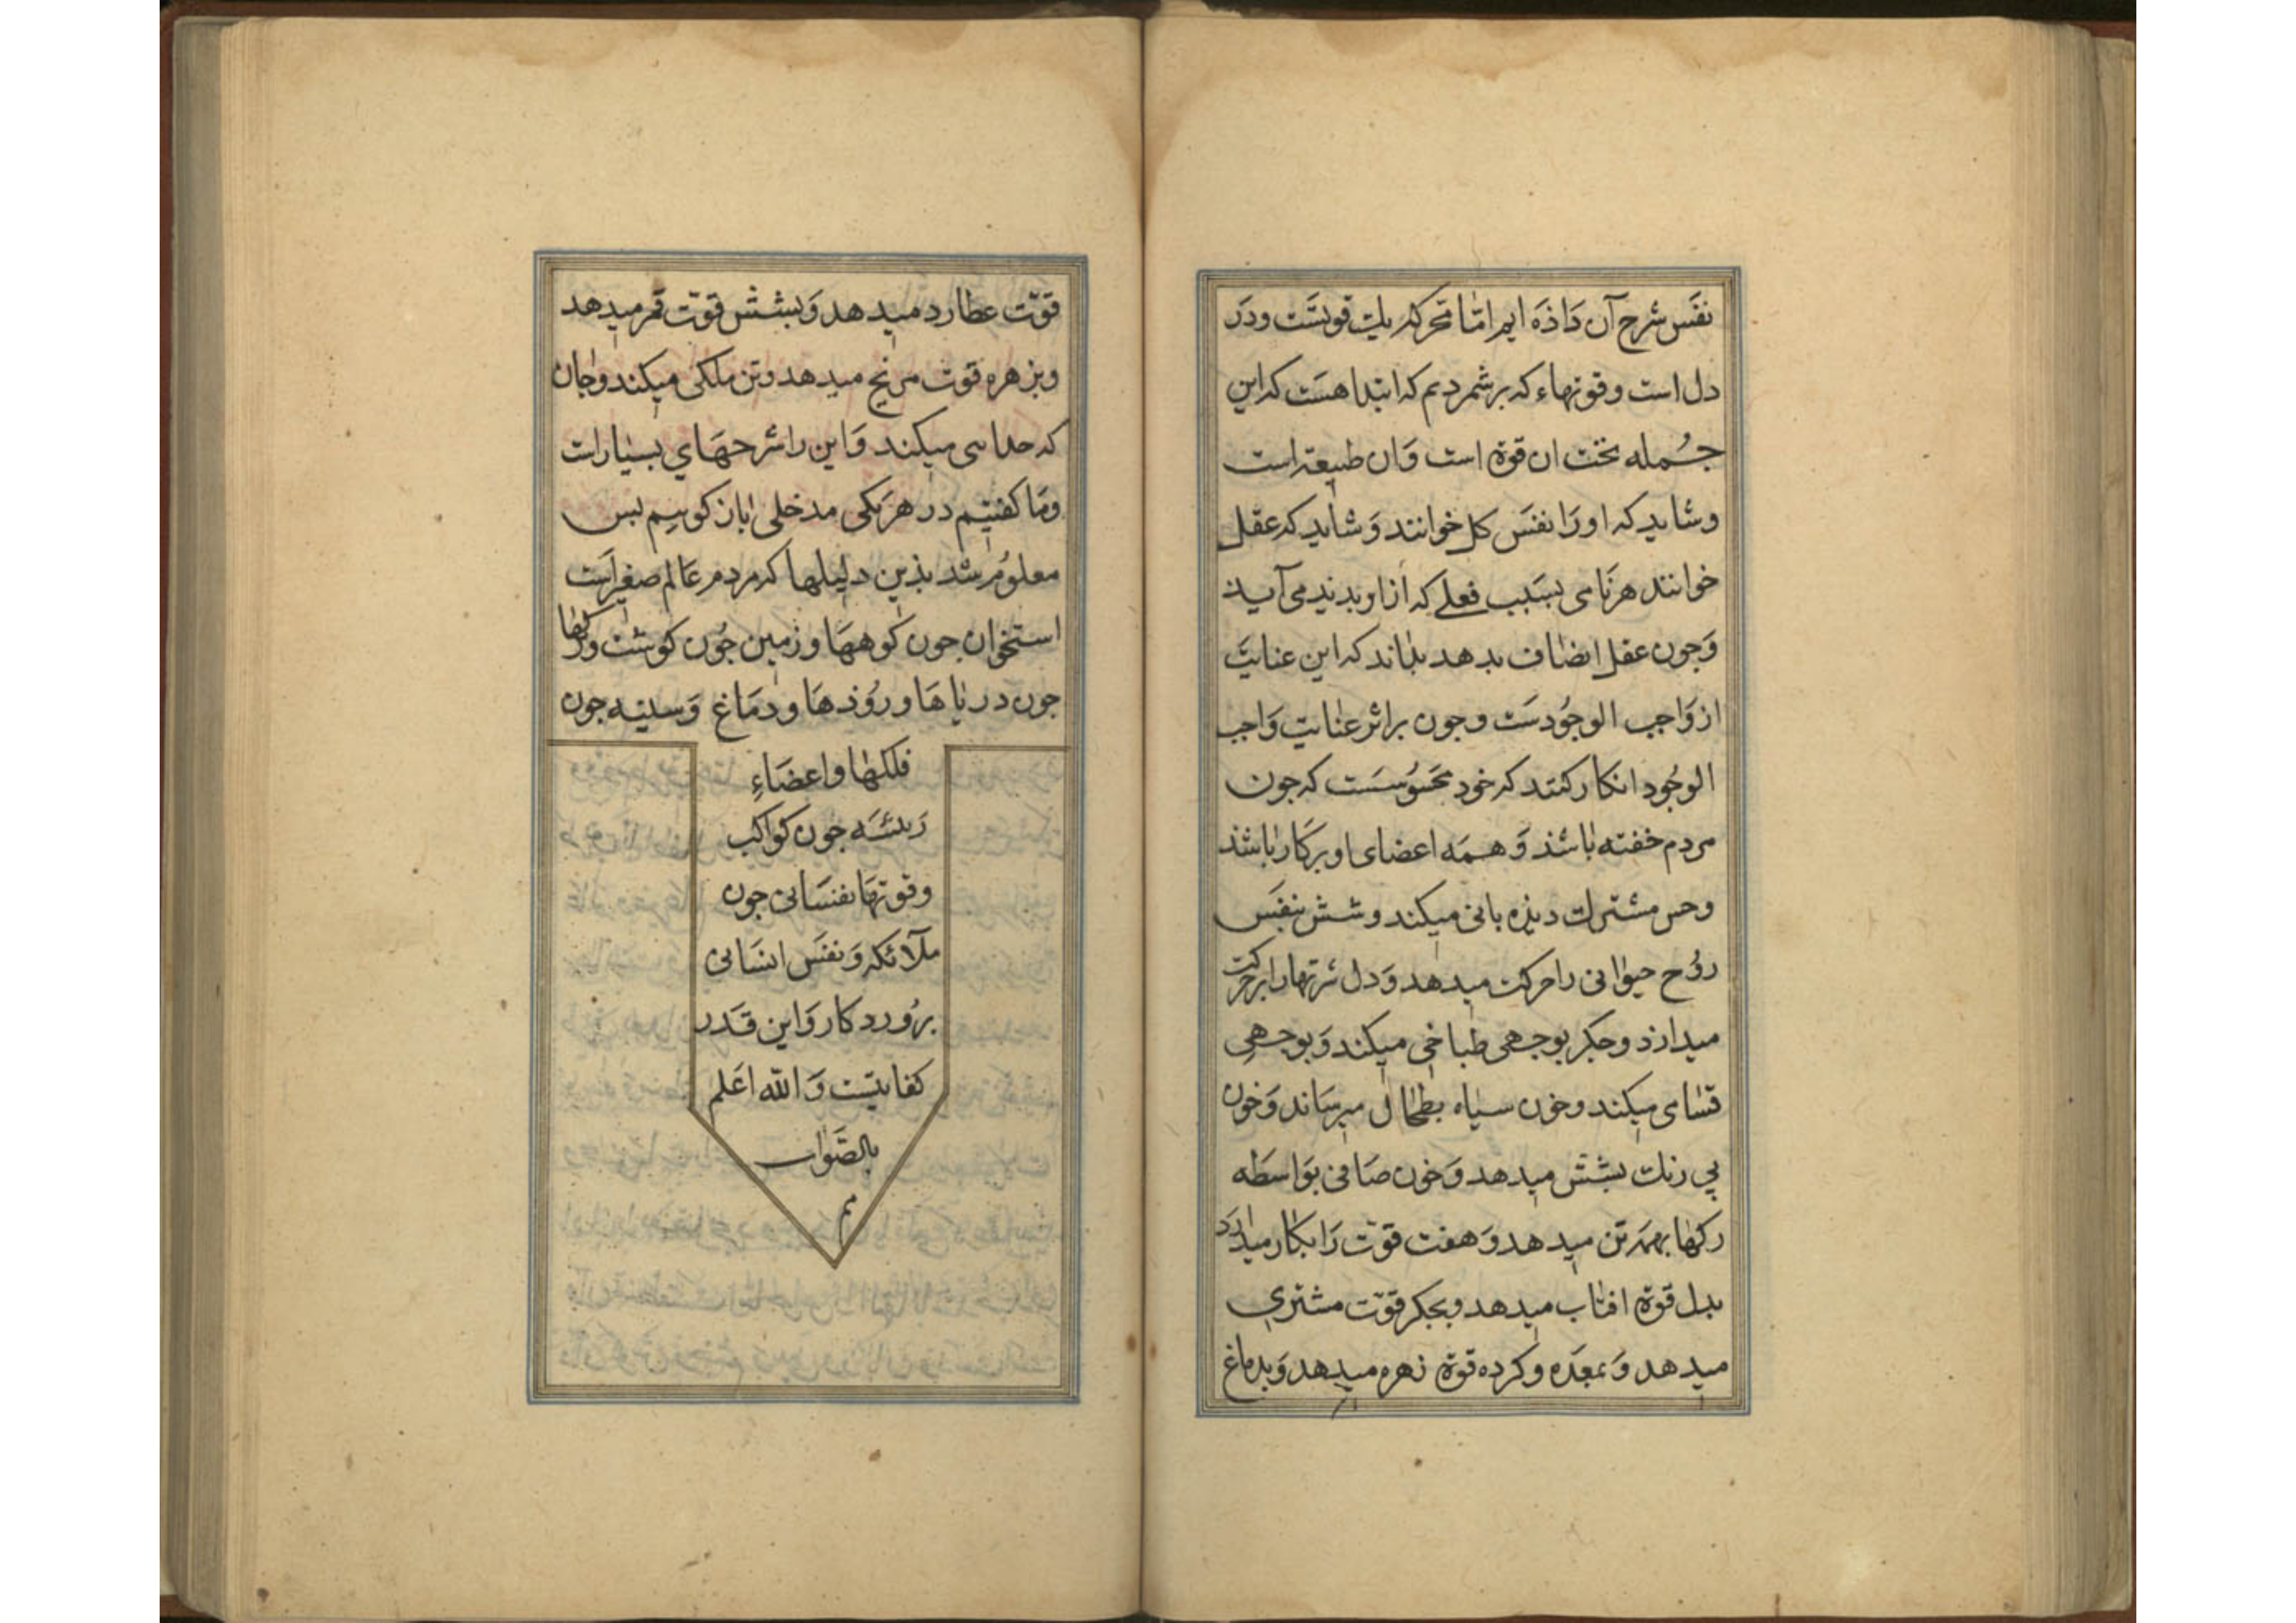 نفَس شرح آن دَاذَه ایم امّا محرکه یک قویست ودَر
دل است وقوتهاء که برشمردیم که ابتدا هست که این
جُمله تحت ان قوة است وَان طبیعة است
وشاید که اورَا نفسَ کل خوانند وَشاید که عقل
خوانند هرنَامی بسَبب فعلے که ازاو بدید می آید
وَجون عقل انصَاف بدهد بداند که این عنایتَ
ازوَاجب الوجُودسَت وجون براثر عنایت وَاجب
الوجُود انکار کنند که خود محسُوسَست که جون
مردم خفته باشذ وَهمَه اعضای او برکَار باشذ
وحس مشترک دیذه بانی میکند وشش بنفَس
روُح حیوانی را حرکت میدهد وَدل شریَانها را برحرکت
میدارذ وجکر بوجهی طباخی میکند وَبوجهی
قسّامی میکند وخون سیاه بطحال میرسَاند وَخون
بی رنک بشش میدهد وَخون صَافی بوَاسطَه
رکها بهمه تن میدهد وَهفت قوّت رَا بکار میدارَد
بدل قوة افتاب میدهد وبجکر قوّت مشتری
میدهد وَبمعدَه وکرده قوة زهره میدهد وَبدماغ
قوّت عطارد میدهد وَبشش قوّت قمر میدهد
وبزهره قوت مریخ میدهد وتن ملکی میکند وجان
که خداسی میکند وَاین را شرحهَای بسیارات
ومَا کفتیم در هَریکی مدخلی بازکوییم بس
معلوُم شد بذین دلیلها که مردم عَالم صغیرَاست
استخوان جون کوههَا وزمین جُون کوشت ورَکها
جون دریاهَا وروُذهَا ودمَاغ وَسینه جون
فلکها واعضَاءِ
رَئیسَه جون کواکب
وقوتهَا نفسَانی جون
ملآئکه وَنفَس انسَانی
برُوردکار وَاین قَدر
کفایتست وَالله اعَلم
بالصَوَاب
تم